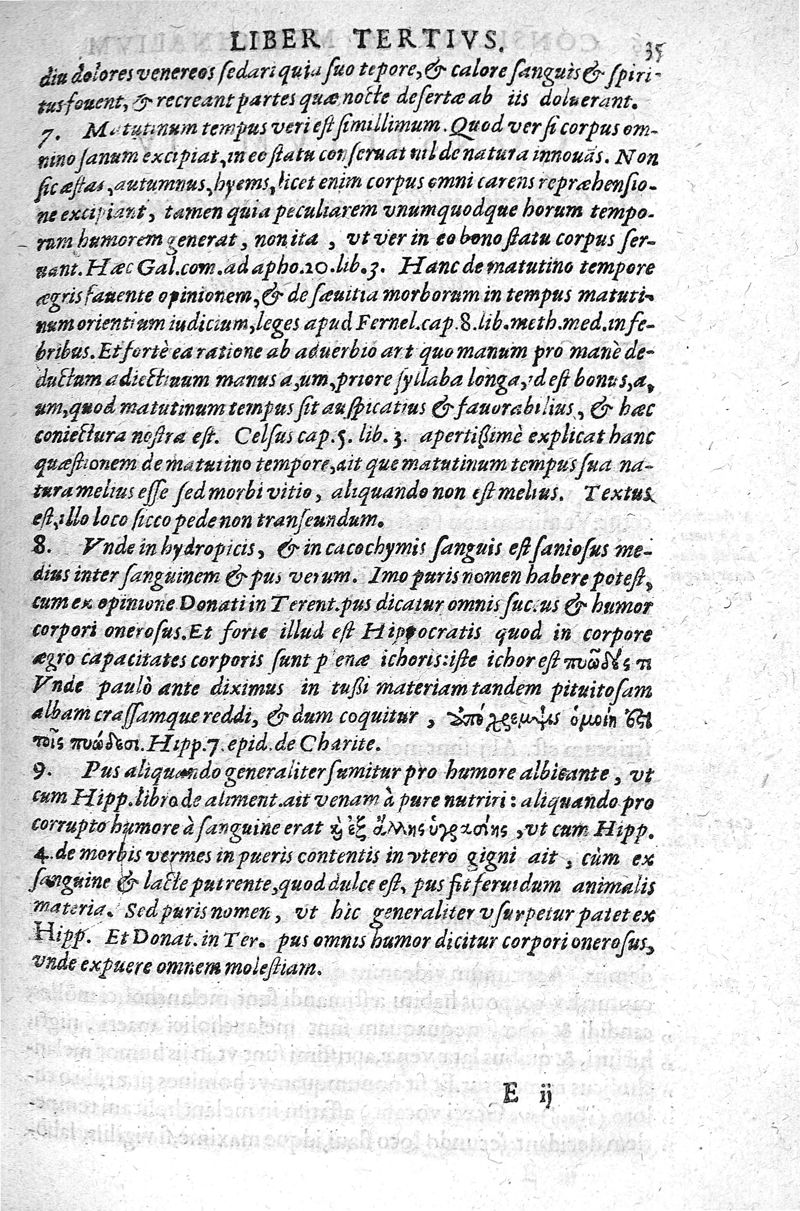 LIBER TERTIVS. 35
diu dolores venereos sedari quia suo tepore, & calore sanguis & spiri-
tus fouent, & recreant partes quæ nocte desertæ ab iis doluerant.
7. Matutinum tempus veri est simillimum. Quod ver si corpus om-
nino sanum excipiat, in eo statu conseruat nil de natura innouãs. Non
sic æstas, autumnus, hyems, licet enim corpus omni carens repræhensio-
ne excipiant, tamen quia peculiarem vnumquodque horum tempo-
rum humorem generat, non ita, vt ver in eo bono statu corpus ser-
uant. Hæc Gal. com. ad apho. 20. lib. 3. Hanc de matutino tempore
ægris fauente opinionem, & de sæuitia morborum in tempus matuti-
num orientium iudicium, leges apud Fernel. cap. 8. lib. meth. med. in fe-
bribus. Et fortè ea ratione ab aduerbio art quo manum pro manè de-
ductum adiectiuum manus a, um, priore syllaba longa, id est bonus, a,
um, quod matutinum tempus sit auspicatius & fauorabilius, & hæc
coniectura nostra est. Celsus cap. 5. lib. 3. apertißimè explicat hanc
quæstionem de matutino tempore, ait que matutinum tempus sua na-
tura melius esse sed morbi vitio, aliquando non est melius. Textus
est, illo loco sicco pede non transeundum.
8. Vnde in hydropicis, & in cacochymis sanguis est saniosus me-
dius inter sanguinem & pus verum. Imo puris nomen habere potest,
cum ex opinione Donati in Terent. pus dicatur omnis succus & humor
corpori onerosus. Et forte illud est Hippocratis quod in corpore
ægro capacitates corporis sunt plenæ ichoris: iste ichor est πυῶδές τι
Vnde paulò ante diximus in tußi materiam tandem pituitosam
albam crassamque reddi, & dum coquitur, ὑπόχρεμψις ὁμοίη ἐστὶ
τοῖς πυώδεσι. Hipp. 7. epid. de Charite.
9. Pus aliquando generaliter sumitur pro humore albicante, vt
cum Hipp. libro de aliment. ait venam à pure nutriri: aliquando pro
corrupto humore à sanguine erat ἢ ἐξ ἄλλης ὑγρασίης, vt cum Hipp.
4. de morbis vermes in pueris contentis in vtero gigni ait, cùm ex
sanguine & lacte putrente, quod dulce est, pus fit feruidum animalis
materia. Sed puris nomen, vt hic generaliter vsurpetur patet ex
Hipp. Et Donat. in Ter. pus omnis humor dicitur corpori onerosus,
vnde expuere omnem molestiam.
E ij